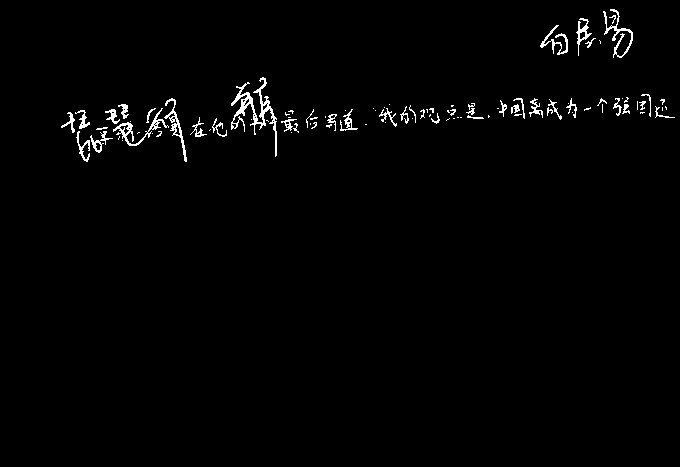 白居易
琵琶在他的最后写道.“我的观点是,中国离成为一个强国还